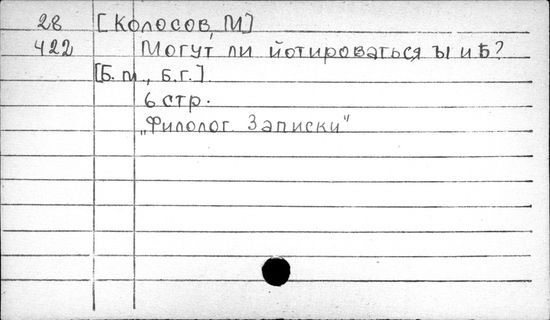 28 [Колосов, М]
422 Могут ли йотироваться ы и ѣ?
[Б. м., Б.г.]
6 стр.
„Филолог. Записки"